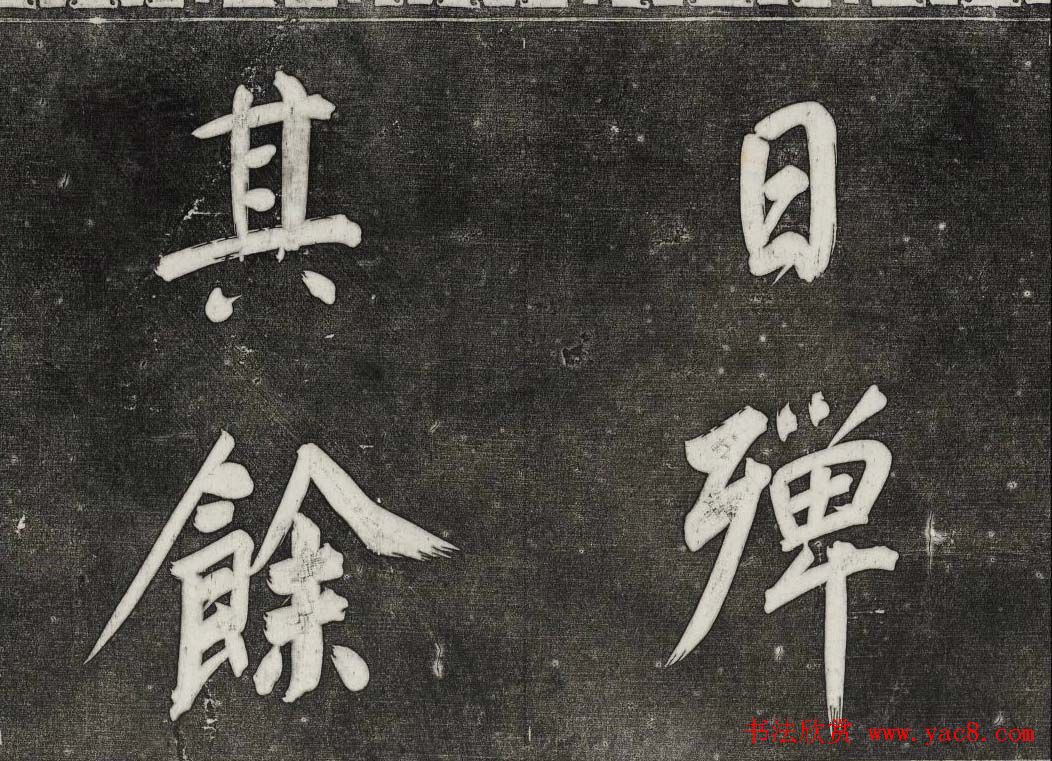 日彈
其餘
书法欣赏 www.yac8.com